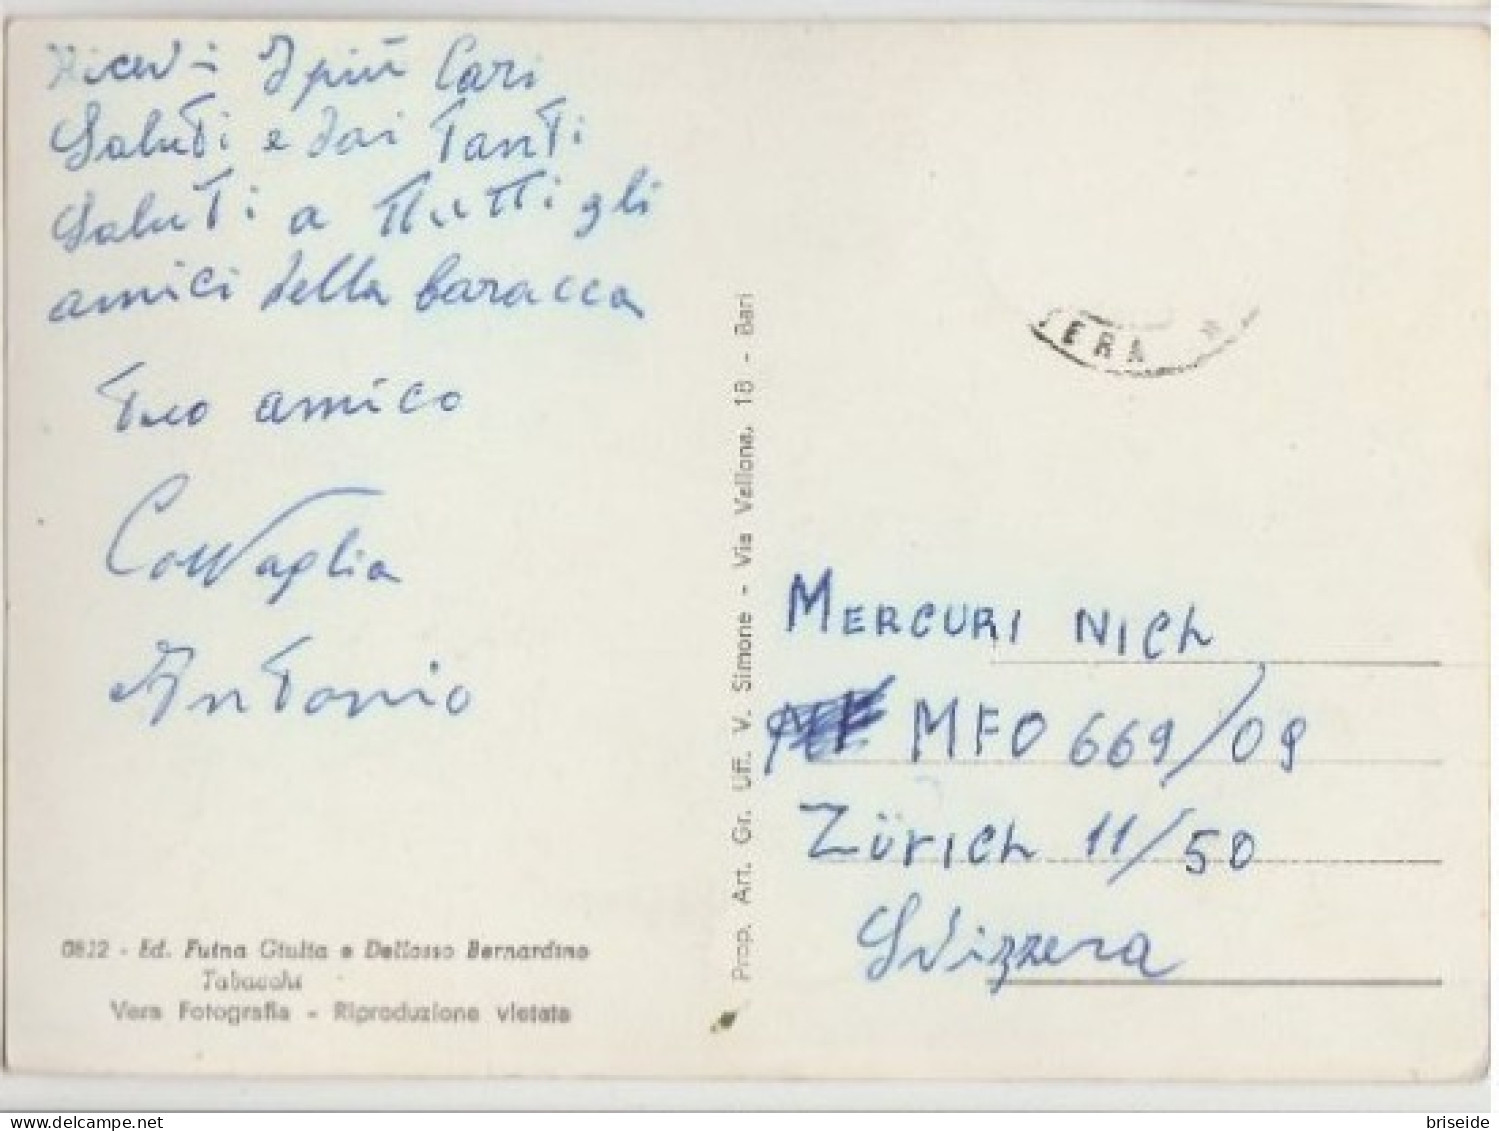 Ricevi I più Cari
Saluti e dai Tanti
Saluti a Tutti gli
amici della baracca
Tuo amico
Antonio
0822 - Ed. Fuina Giulia e Dellosso Bernardino
Tabacchi
Vera Fotografia - Riproduzione vietata
Prop. Art. Gr. Uff. V. Simone - Via Vallona, 18 - Bari
ERA *
MERCURI NICh
MFO 669/09
Zürich 11/50
Svizzera
briseide